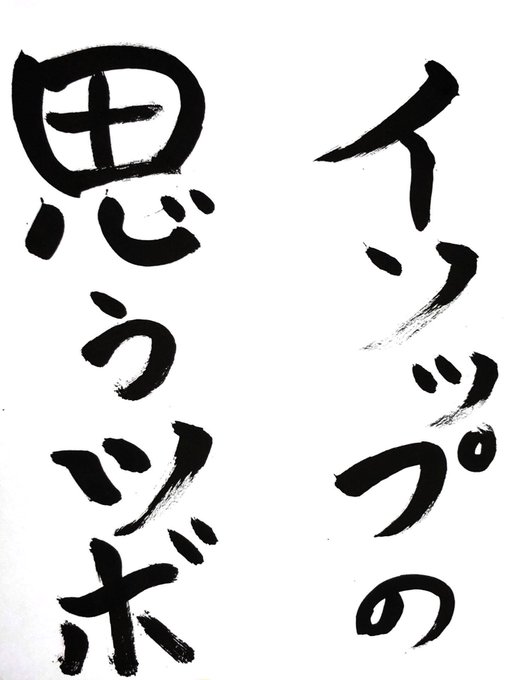 イソップの
思うツボ